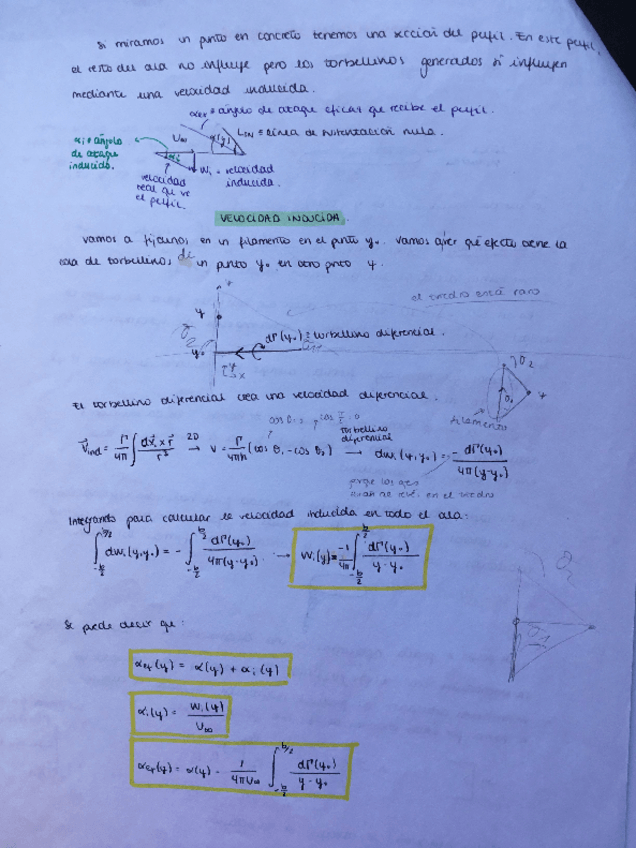 Si miramos un punto en concreto tenemos una sección del perfil. En este perfil,
el resto del ala no influye pero los torbellinos generados si influyen
mediante una velocidad inducida.
αef = ángulo de ataque eficaz que recibe el perfil.
LSN = Línea de sustentación nula.
αi = ángulo
de ataque
inducido.
U∞
α(y)
αi
Wi = velocidad
inducida.
velocidad
real que ve
el perfil.
VELOCIDAD INDUCIDA
Vamos a fijarnos en un filamento en el punto y₀. Vamos a ver qué efecto tiene la
cola de torbellinos de un punto y₀ en otro punto y.
el está raro
y
dΓ(y₀) = torbellino diferencial.
y₀
y
x
θ2
y
filamento
El torbellino diferencial crea una velocidad diferencial.
V⃗ind = Γ/4π ∫ dx⃗ × r⃗ / r³ →2D V = Γ/4πh (cos θ₁ - cos θ₂) →torbellino diferencial dWi (y, y₀) = - dΓ(y₀) / 4π(y-y₀)
en el
Integrando para calcular la velocidad inducida en todo el ala:
∫_{-b/2}^{b/2} dWi (y, y₀) = - ∫_{-b/2}^{b/2} dΓ(y₀) / 4π(y-y₀) → Wi(y) = -1/4π ∫_{-b/2}^{b/2} dΓ(y₀) / y-y₀
Se puede decir que:
αef (y) = α(y) + αi (y)
αi(y) = Wi(y) / U∞
αef(y) = α(y) - 1/4πU∞ ∫_{-b/2}^{b/2} dΓ(y₀) / y-y₀